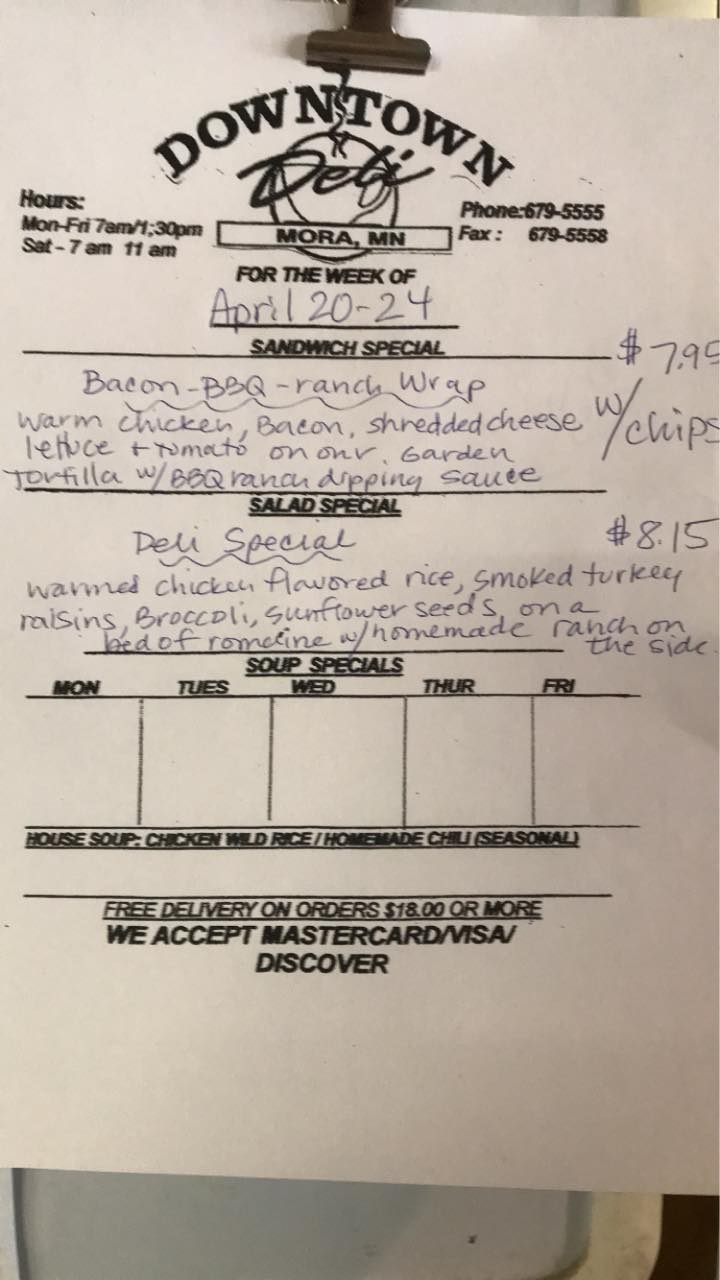 DOWNTOWN
Deli
MORA, MN
Hours:
Mon-Fri 7am/1;30pm
Sat - 7 am 11 am
Phone:679-5555
Fax : 679-5558
FOR THE WEEK OF
April 20-24
SANDWICH SPECIAL
$7.95
Bacon-BBQ-ranch Wrap
warm chicken, Bacon, shredded cheese
w/chips
lettuce + tomato on our garden
tortilla w/BBQ ranch dipping sauce
SALAD SPECIAL
Deli Special
$8.15
warmed chicken flavored rice, smoked turkey
raisins, Broccoli, sunflower seeds, on a
bed of romaine w/homemade ranch on
the side.
SOUP SPECIALS
MON TUES WED THUR FRI
HOUSE SOUP: CHICKEN WILD RICE / HOMEMADE CHILI (SEASONAL)
FREE DELIVERY ON ORDERS $18.00 OR MORE
WE ACCEPT MASTERCARD/VISA/
DISCOVER